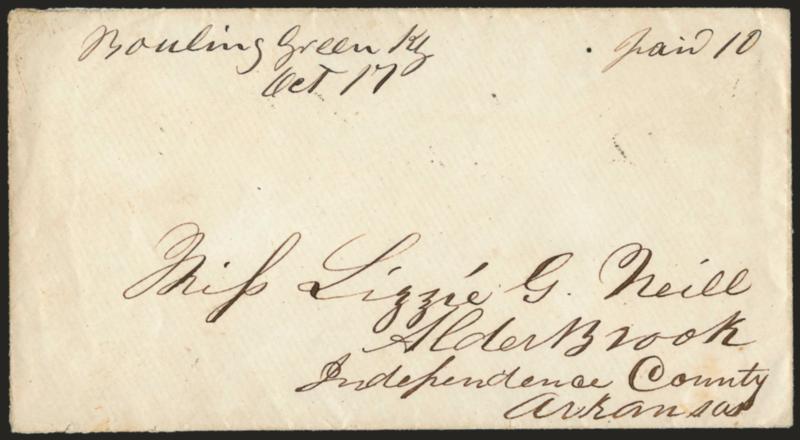 Bouling Green Ky
Oct 17
paid 10
Miss Lizzie G. Neill
Alder Brook
Independence County
Arkansas